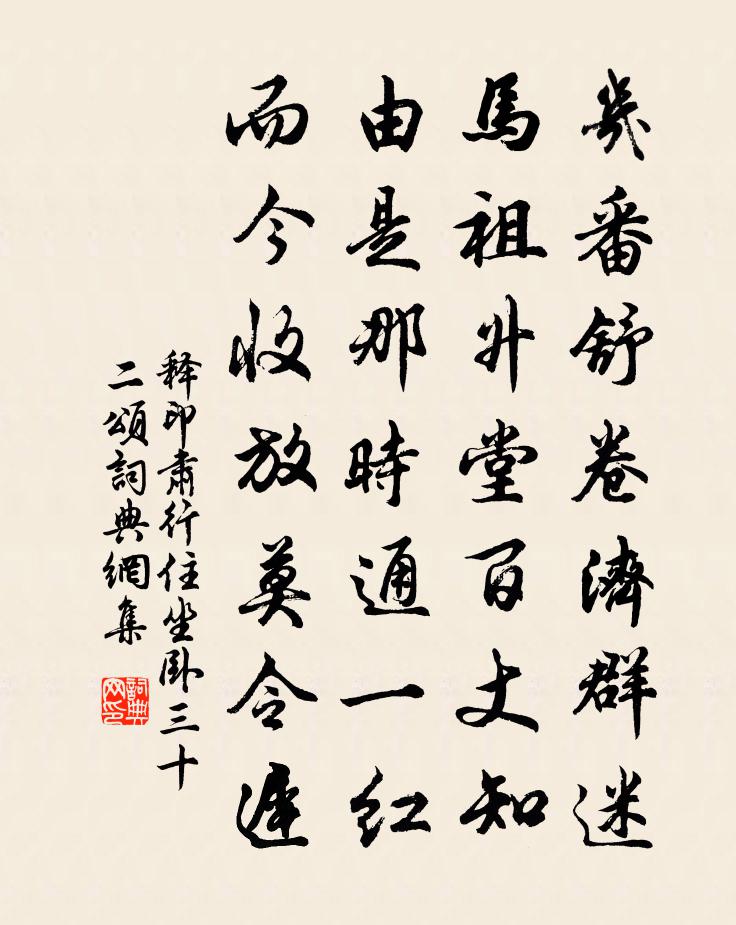 幾番舒卷濟群迷
馬祖升堂百丈知
由是那時通一紅
而今收放莫令遲
释印肅行住坐卧三十
二頌詞典網集
詞典网印